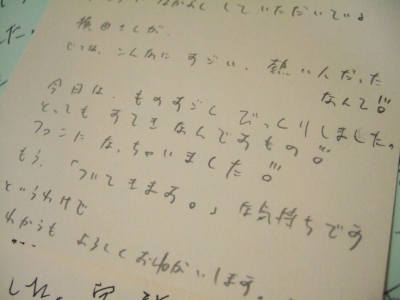 していただいている
横田さんが、
じつは、こんなに すごい、熱い人だった
なんて!!
今日は、ものすごく びっくりしました。
とっても すてきなんですもの!!
ファンに なっちゃいました!!
もう、「ついてきます。」な気持ちです
というわけで
これからも よろしくおねがいします。